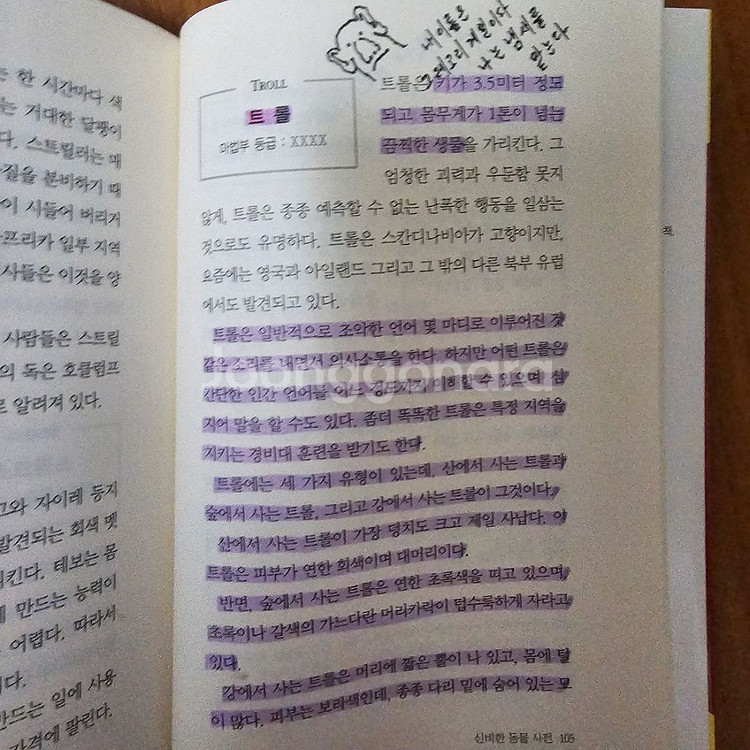 한 시간마다 색
는 거대한 달팽이
다. 스트릴러는 때
질을 분비하기 때
이 시들어 버리거
프리카 일부 지역
사들은 이것을 양
사람들은 스트릴
의 독은 호클럼프
로 알려져 있다.
그와 자이레 등지
발견되는 회색 멧
킨다. 테보는 몸
만드는 능력이
어렵다. 따라서
다.
만드는 일에 사용
가격에 팔린다.
내 이름은
그레고리 괴일이다
나는 냄새를
맡는다
TROLL
트롤
마법부 등급 : XXXX
트롤은 키가 3.5미터 정도
되고, 몸무게가 1톤이 넘는
끔찍한 생물을 가리킨다. 그
엄청난 괴력과 우둔함 못지
않게, 트롤은 종종 예측할 수 없는 난폭한 행동을 일삼는
것으로도 유명하다. 트롤은 스칸디나비아가 고향이지만,
요즘에는 영국과 아일랜드 그리고 그 밖의 다른 북부 유럽
에서도 발견되고 있다.
트롤은 일반적으로 조악한 언어 몇 마디로 이루어진 것
같은 소리를 내면서 의사소통을 한다. 하지만 어떤 트롤은
간단한 인간 언어를 어느 정도까지 이해할 수 있으며 심
지어 말을 할 수도 있다. 좀더 똑똑한 트롤은 특정 지역을
지키는 경비대 훈련을 받기도 한다.
트롤에는 세 가지 유형이 있는데, 산에서 사는 트롤과
숲에서 사는 트롤, 그리고 강에서 사는 트롤이 그것이다.
산에서 사는 트롤이 가장 덩치도 크고 제일 사납다. 이
트롤은 피부가 연한 회색이며 대머리이다.
반면, 숲에서 사는 트롤은 연한 초록색을 띠고 있으며,
초록이나 갈색의 가느다란 머리카락이 텁수룩하게 자라고
있다.
강에서 사는 트롤은 머리에 짧은 뿔이 나 있고, 몸에 털
이 많다. 피부는 보라색인데, 종종 다리 밑에 숨어 있는 모
신비한 동물 사전 105
책
joonggonara